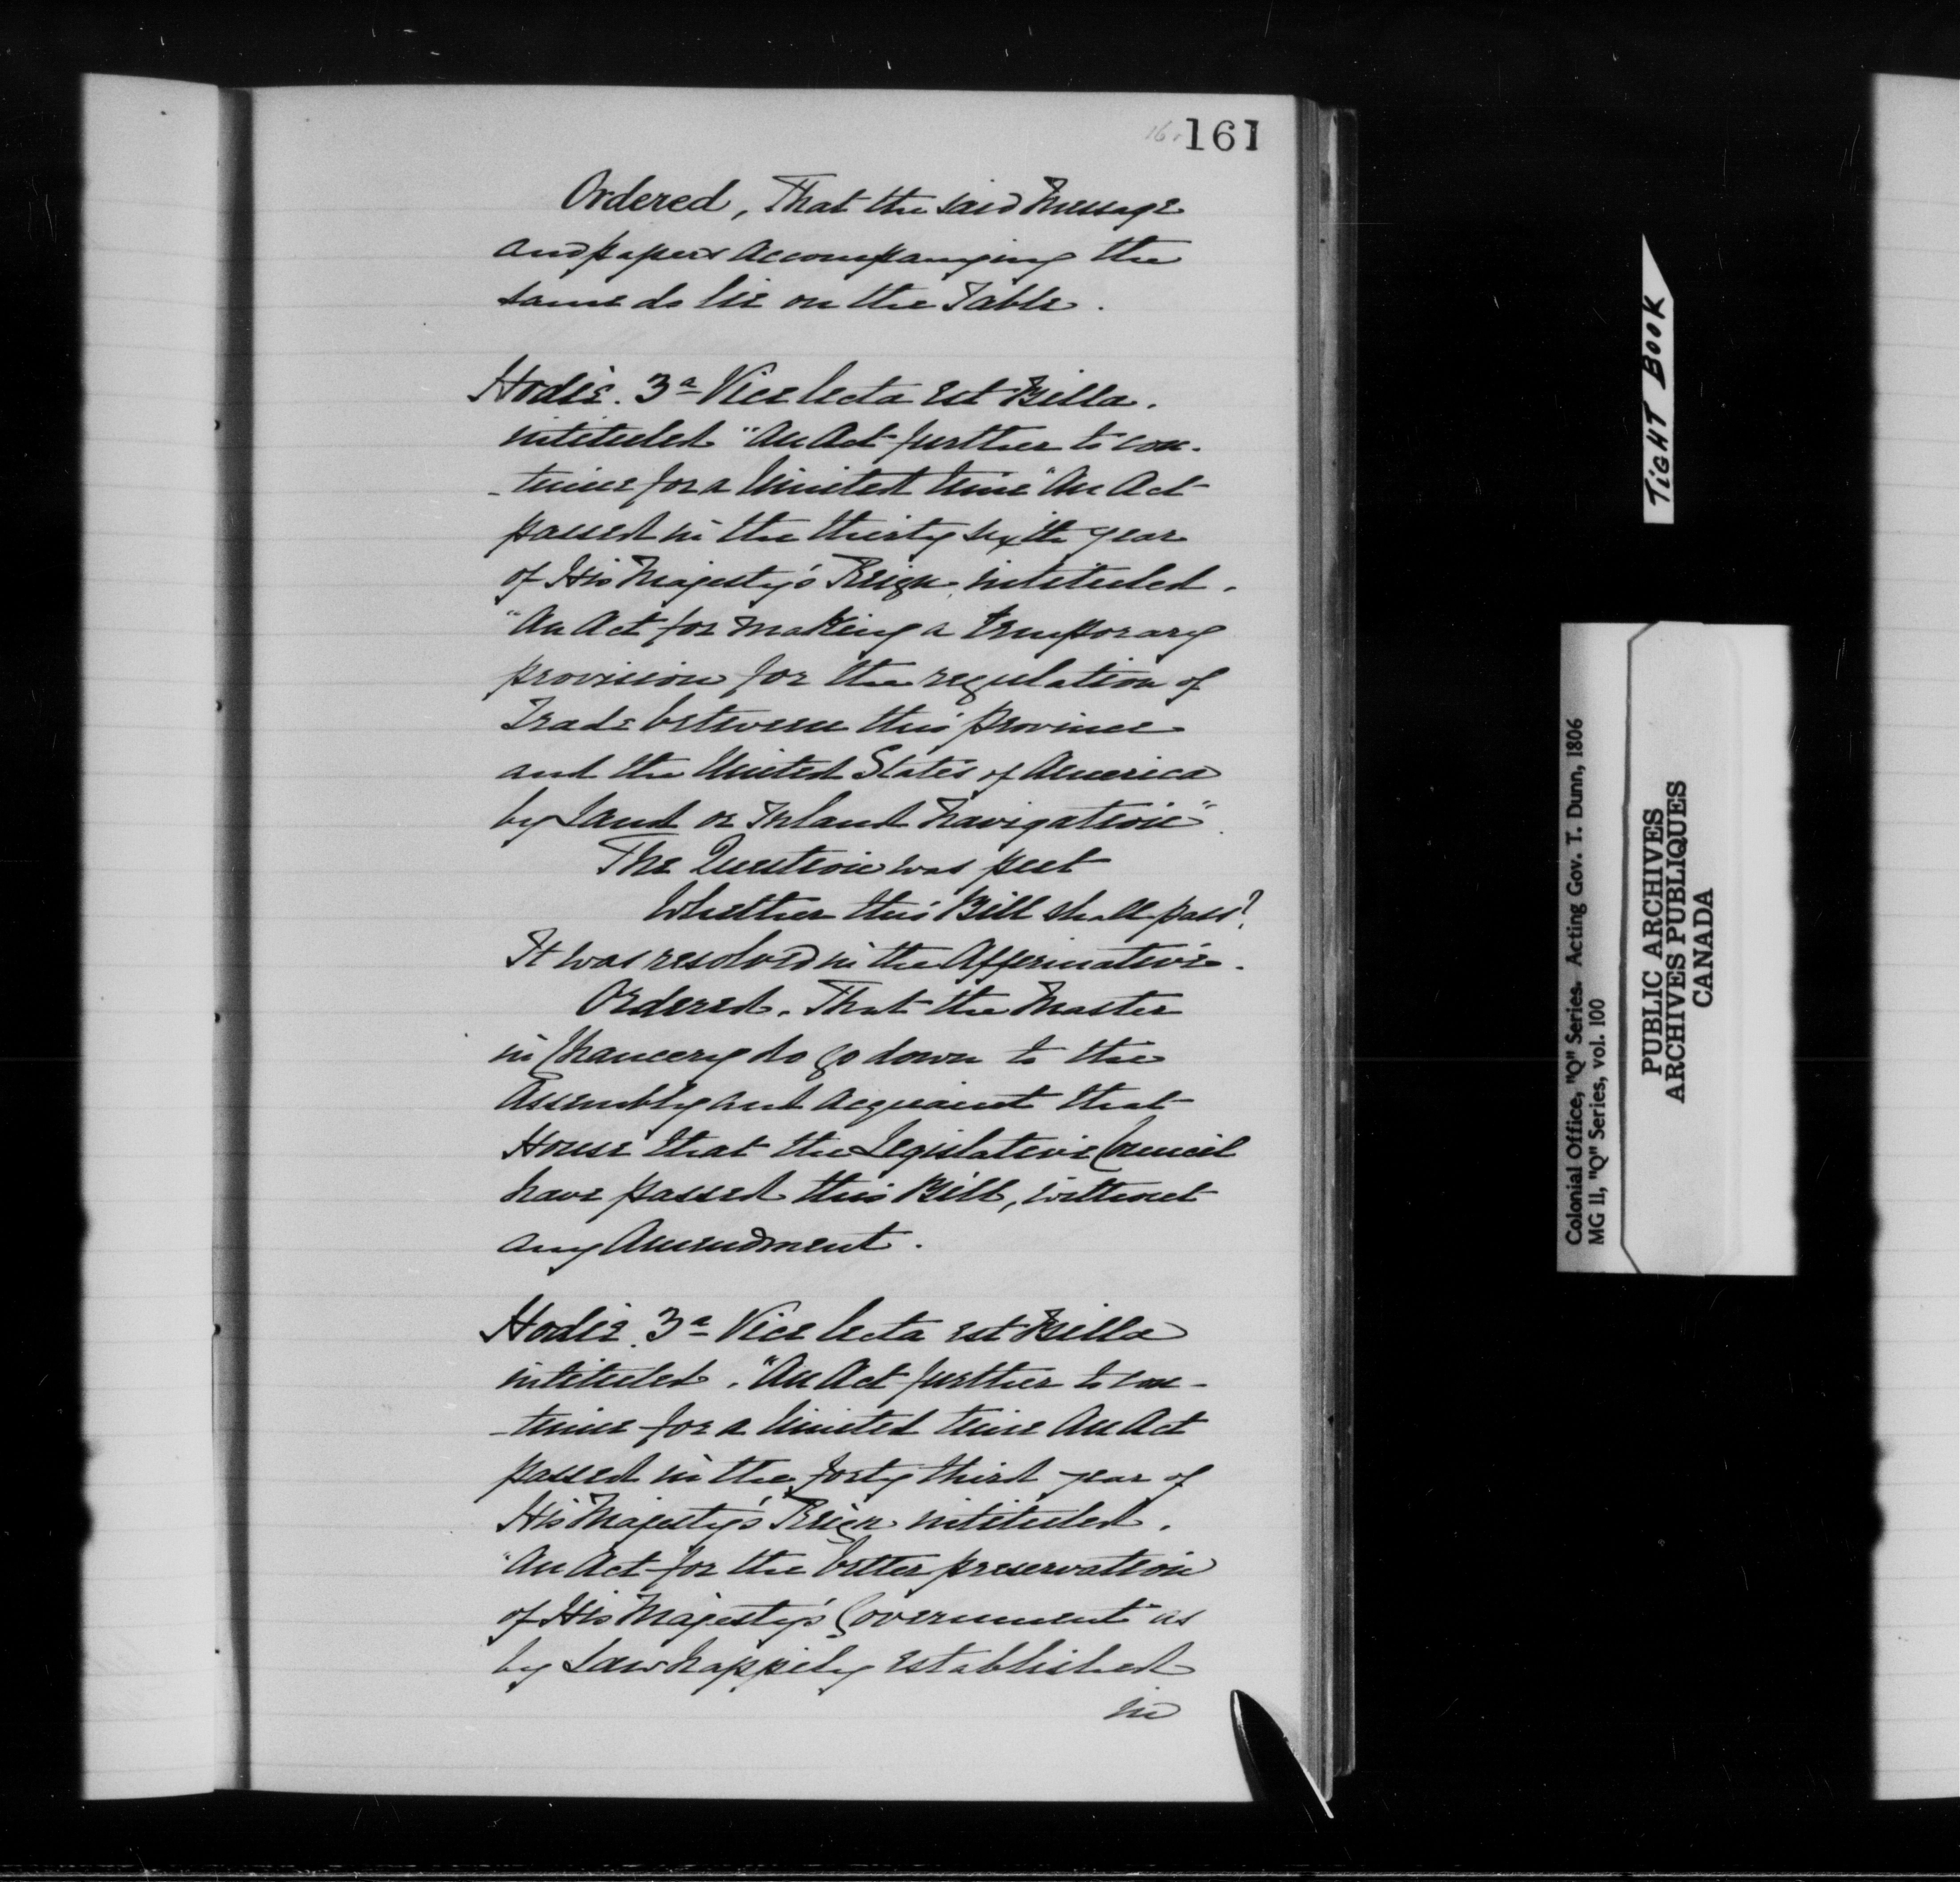 161
Ordered, That the said Message
and papers accompanying the
same do lie on the Table.
Hodiè. 3a Vice lecta est Billa.
intituled "An Act further to con-
-tinue for a limited time "An Act
passed in the thirty sixth year
of His Majesty's Reign, intituled.
"An Act for making a temporary
provision for the regulation of
Trade between this province
and the United States of America
by Land or Inland Navigation".
The Question was put
Whether this Bill shall pass?
It was resolved in the Affirmative.
Ordered. That the Master
in Chancery do go down to the
Assembly and acquaint that
House that the Legislative Council
have passed this Bill, without
any Amendment.
Hodiè. 3a Vice lecta est Billa
intituled. "An Act further to con-
-tinue for a limited time An Act
passed in the forty third year of
His Majesty's Reign intituled.
"An Act for the better preservation
of His Majesty's Government as
by Law happily established
in
TIGHT BOOK
Colonial Office, "Q" Series. Acting Gov. T. Dunn, 1806
MG 11, "Q" Series, vol. 100
PUBLIC ARCHIVES
ARCHIVES PUBLIQUES
CANADA